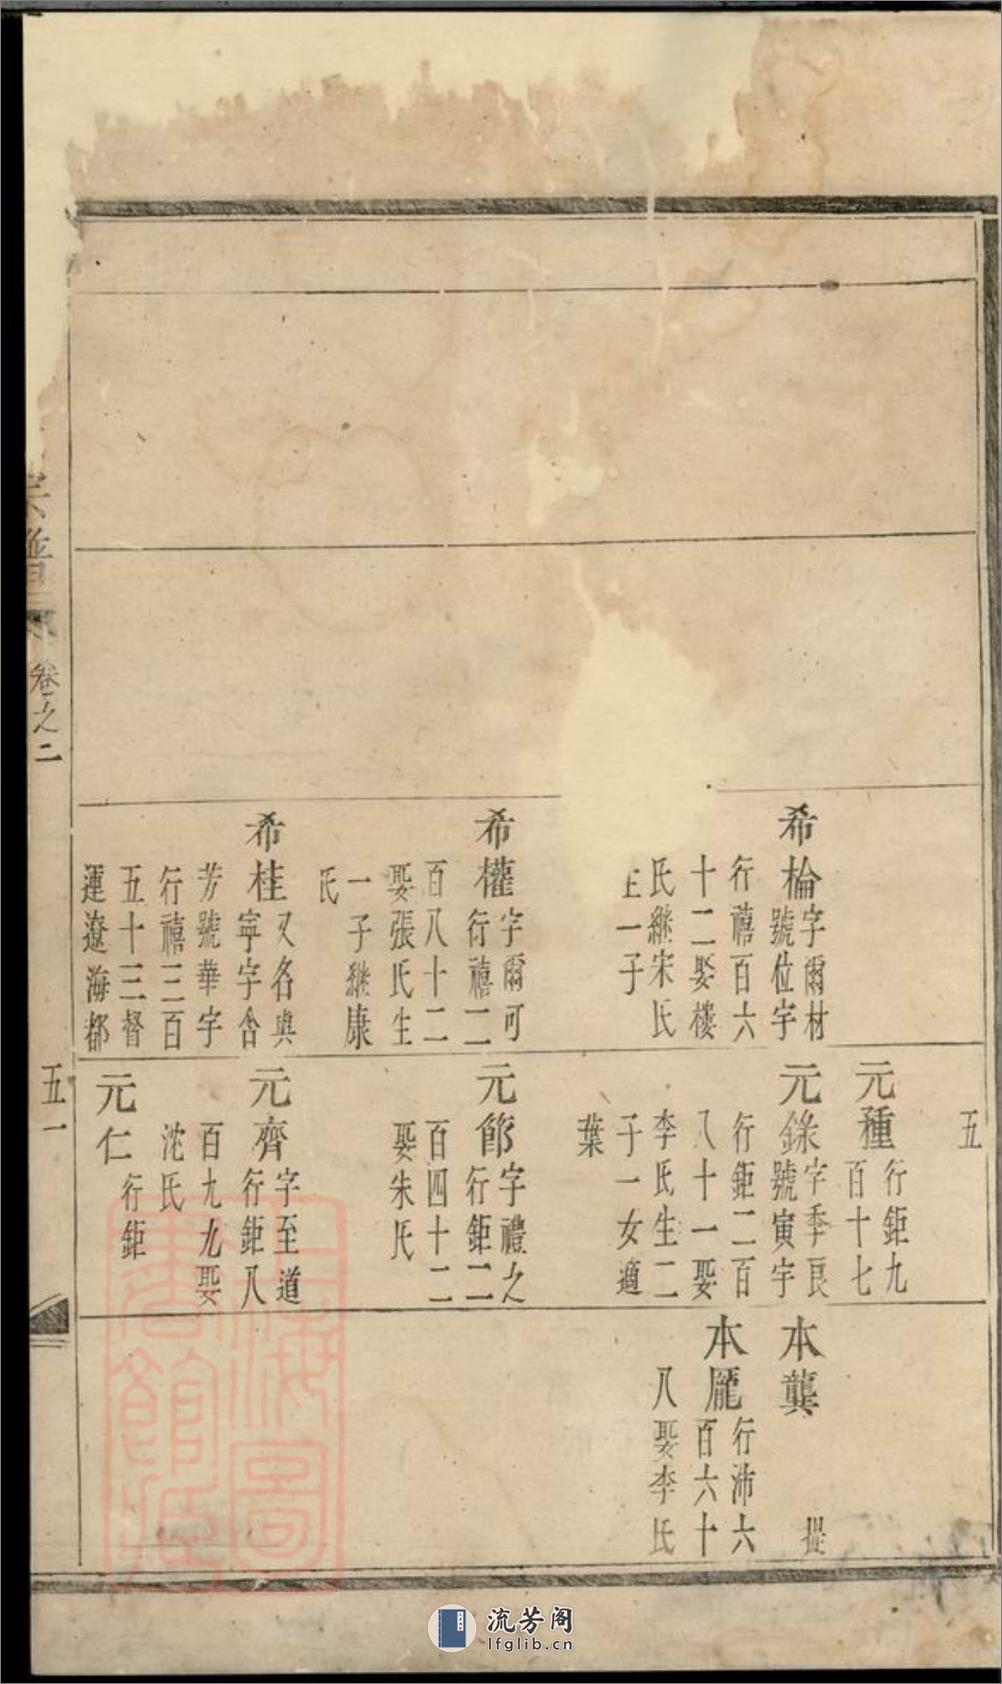 希棆字爾材
號位宇
行禧百六
十二娶樓
氏継宋氏
生一子
希權字爾可
行禧二
百八十二
娶張氏生
一子継康
氏
希桂又名與
寧字含
芳號華宇
行禧三百
五十三督
運遼海都
五
元種行鉅九
百十七
元錄字季良
號寅宇
行鉅二百
八十一娶
李氏生二
子一女適
葉
元節字禮之
行鉅二
百四十二
娶朱氏
元齊字至道
行鉅八
百九九娶
沈氏
元仁行鉅
本龔
提
本龎行沛六
百六十
八娶李氏
宗譜
卷之二
五一
上海圖書館藏
流芳阁
lfglib.cn